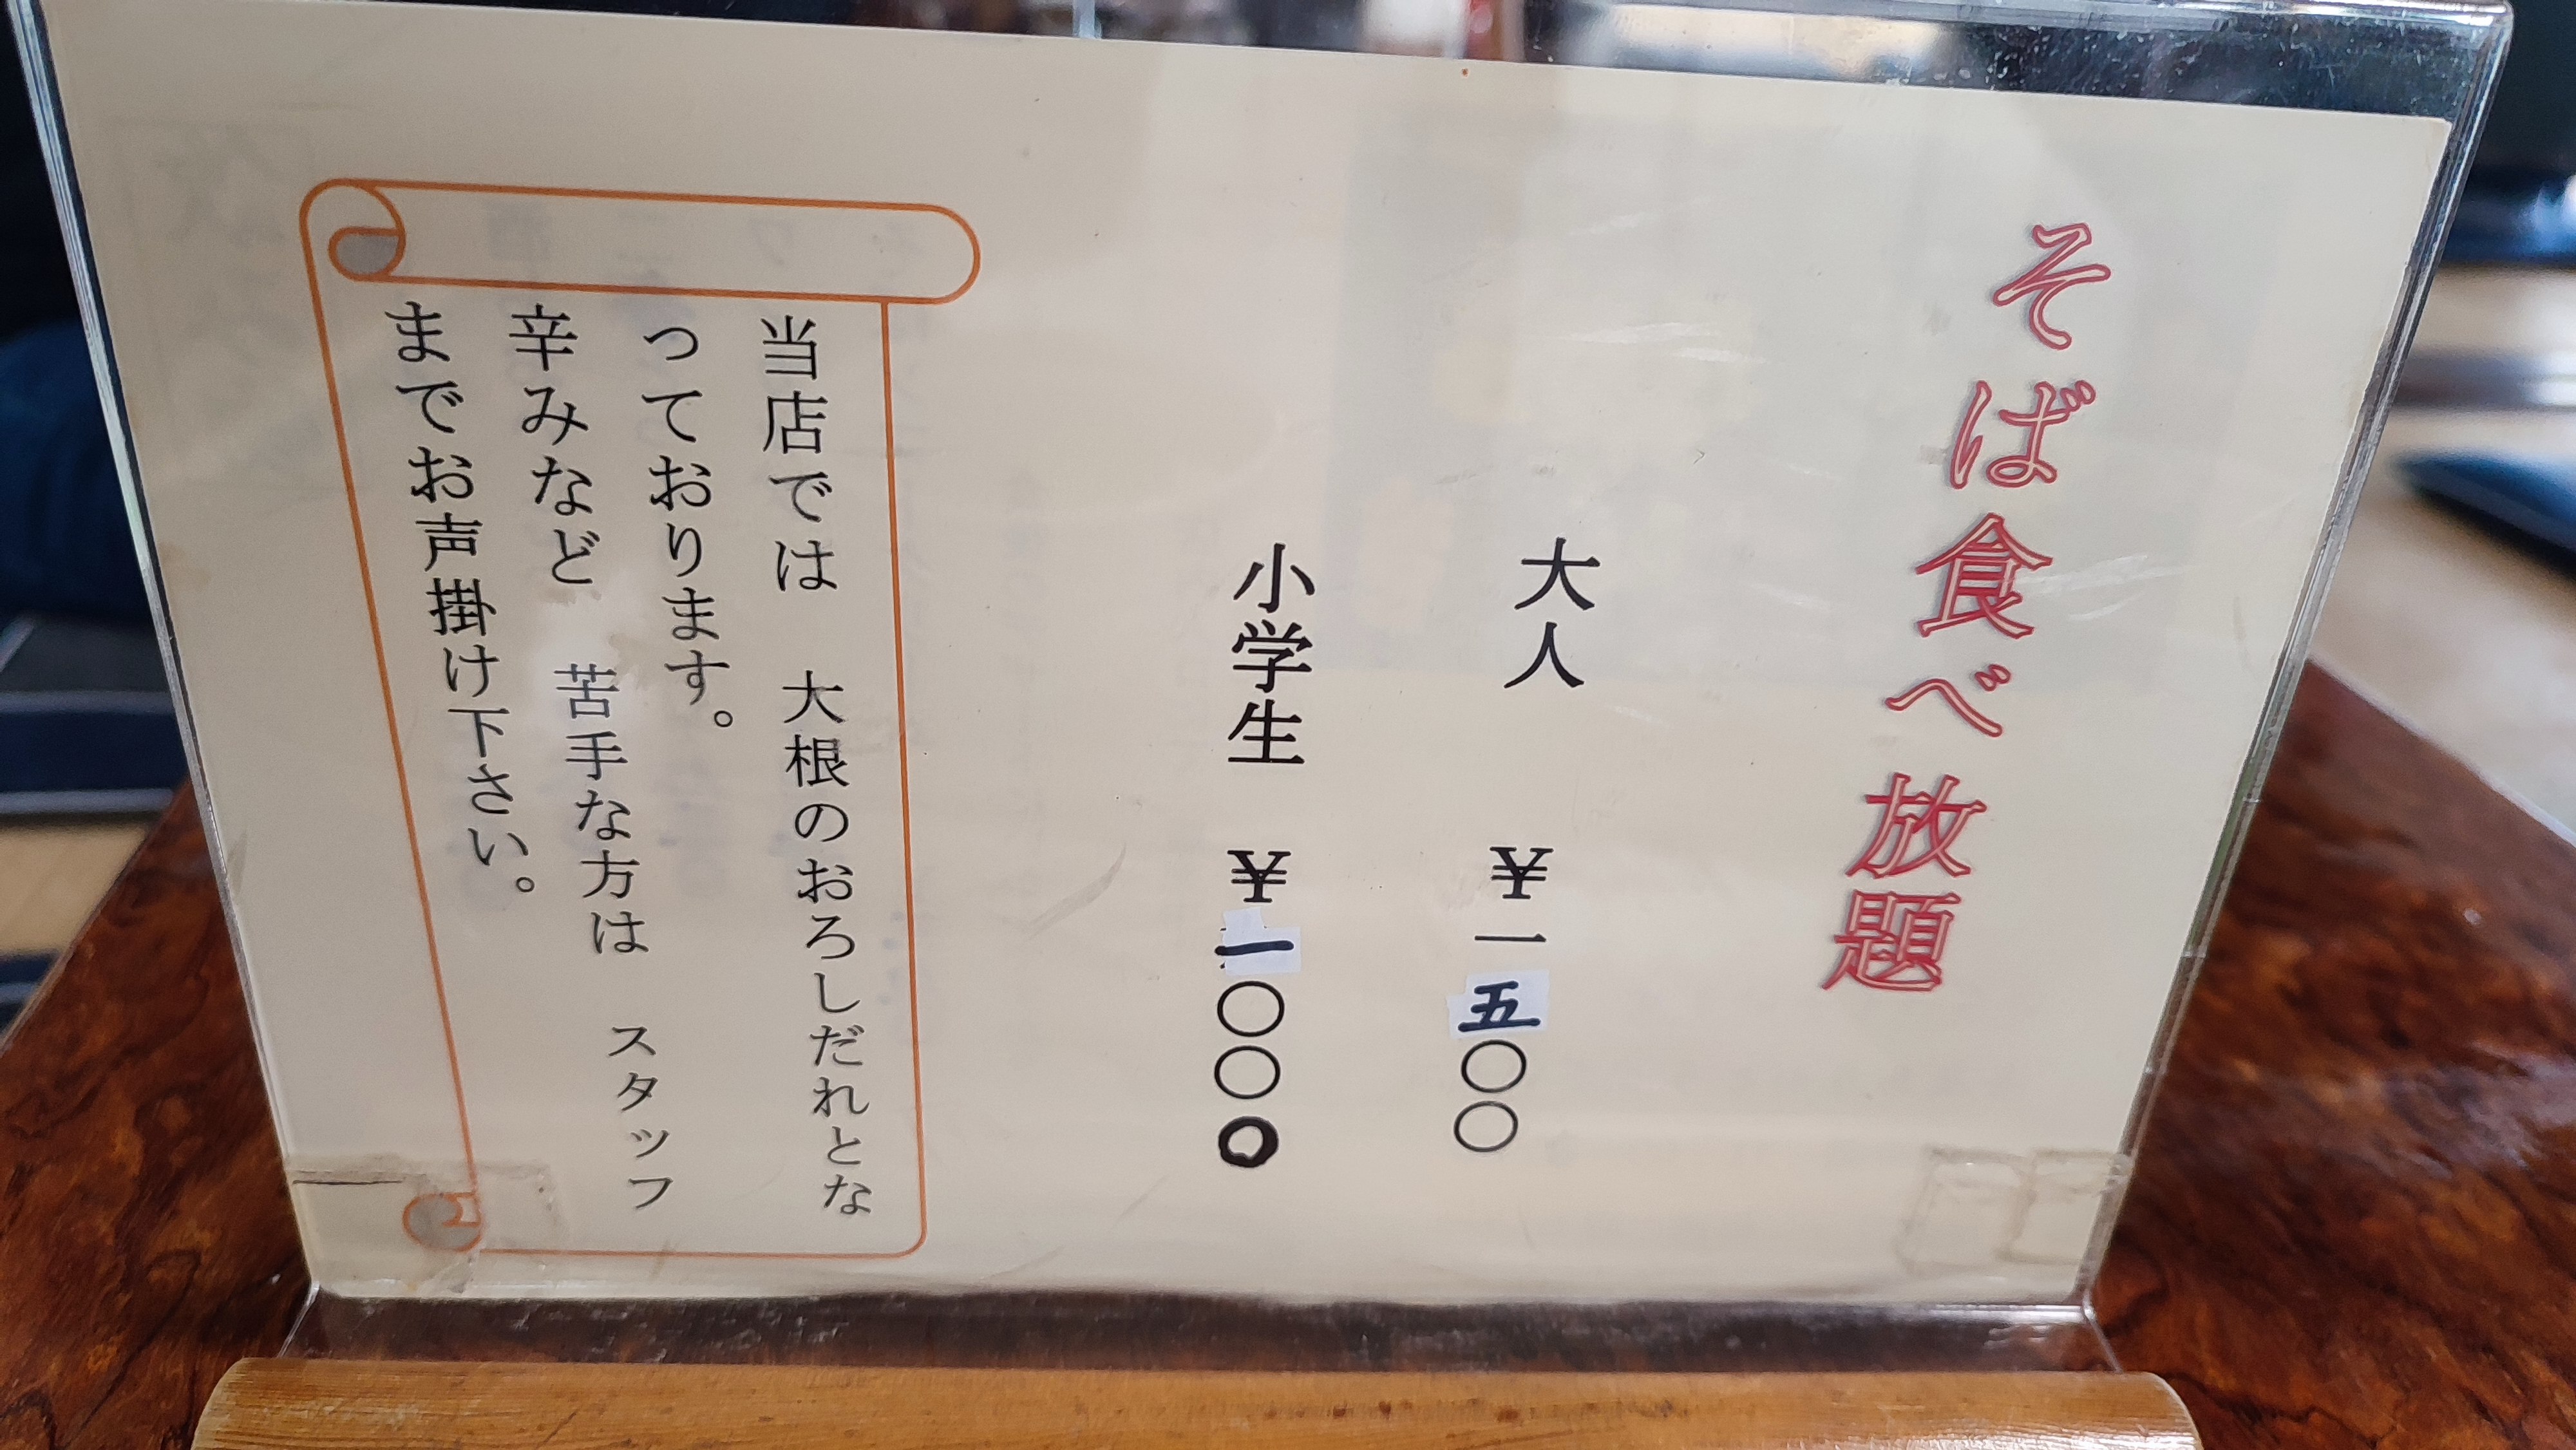 そば食べ放題
大人 ¥一五〇〇
小学生 ¥一〇〇〇
当店では 大根のおろしだれとな
っております。
辛みなど 苦手な方は スタッフ
までお声掛け下さい。